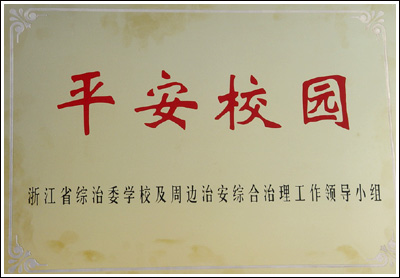 平安校园
浙江省综治委学校及周边治安综合治理工作领导小组